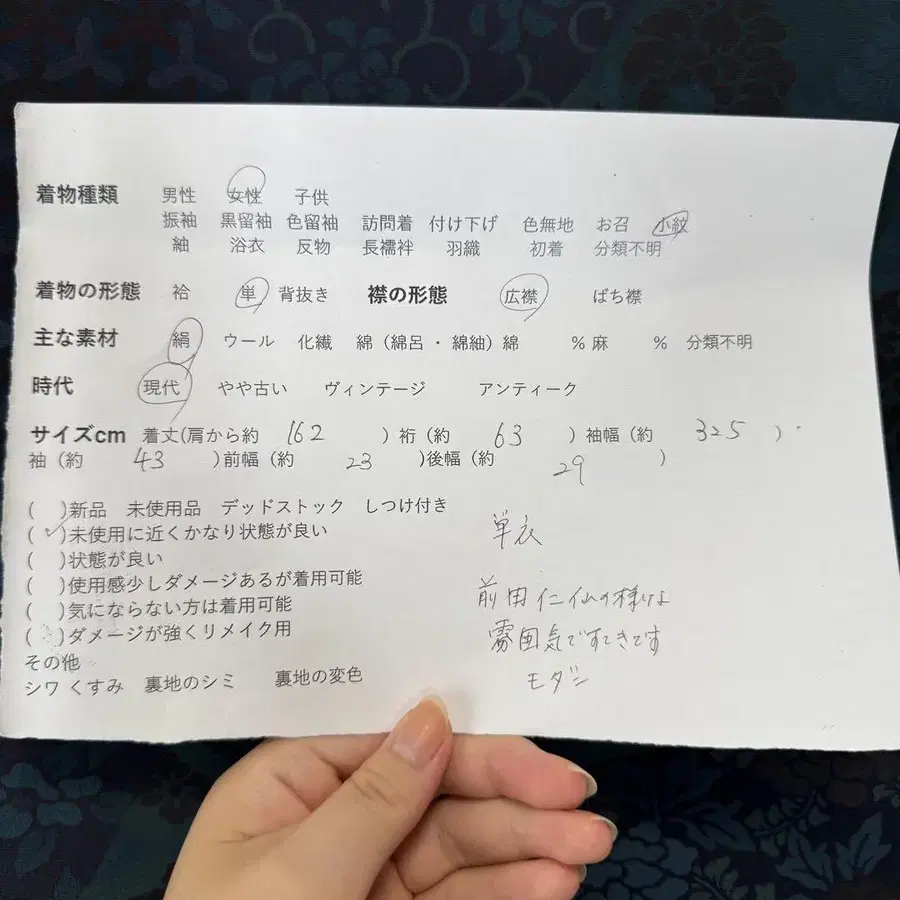 着物種類 男性 女性 子供
振袖 黒留袖 色留袖 訪問着 付け下げ 色無地 お召 小紋
紬 浴衣 反物 長襦袢 羽織 初着 分類不明
着物の形態 袷 単 背抜き 襟の形態 広襟 ばち襟
主な素材 絹 ウール 化繊 綿（綿呂・綿紬）綿 %麻 % 分類不明
時代 現代 やや古い ヴィンテージ アンティーク
サイズcm 着丈(肩から約 162 ）裄（約 63 ）袖幅（約 325 ）
袖（約 43 )前幅（約 23 )後幅（約 29 ）
( )新品 未使用品 デッドストック しつけ付き
(✓)未使用に近くかなり状態が良い
( )状態が良い
( )使用感少しダメージあるが着用可能
( )気にならない方は着用可能
( )ダメージが強くリメイク用
その他
シワ くすみ 裏地のシミ 裏地の変色
単衣
前田仁仙の様な
雰囲気ですてきです
モダン